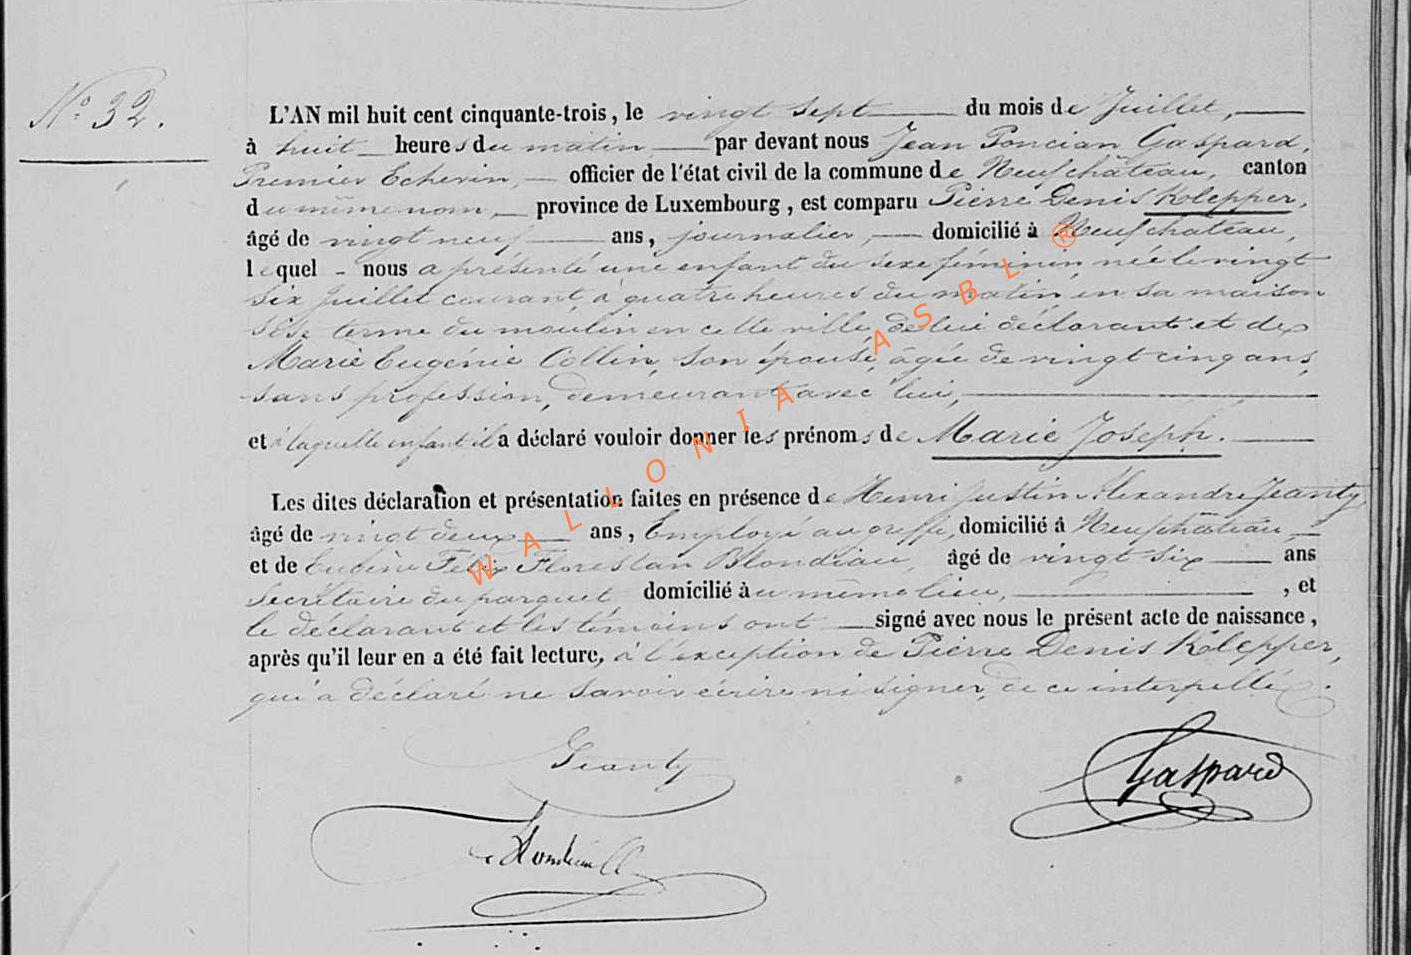 N° 32.
L'AN mil huit cent cinquante-trois, le vingt sept du mois de Juillet,
à huit heures du matin, par devant nous Jean Poncian Gaspard,
Premier Echevin, officier de l'état civil de la commune de Neufchâteau, canton
du même nom, province de Luxembourg, est comparu Pierre Denis Kolepper,
âgé de vingt neuf ans, journalier, domicilié à Neufchâteau,
lequel nous a présenté une enfant du sexe féminin, née le vingt
six Juillet courant, à quatre heures du matin, en sa maison
terme du moulin en cette ville, de lui déclarant et de
Marie Eugénie Collin, son épouse, âgée de vingt cinq ans,
sans profession, demeurant avec lui,
et à laquelle enfant il a déclaré vouloir donner les prénoms de Marie Joseph.
Les dites déclaration et présentation faites en présence de Henri Justin Alexandre Jeanty
âgé de vingt deux ans, Employé au greffe, domicilié à Neufchâteau
et de Eugène Felix Florestan Blondiau âgé de vingt six ans
secrétaire du parquet, domicilié au même lieu, , et
le déclarant et les témoins ont signé avec nous le présent acte de naissance,
après qu'il leur en a été fait lecture, à l'exception de Pierre Denis Kolepper,
qui a déclaré ne savoir écrire ni signer, de ce interpellé.
Jeanty
Gaspard
WALLONIA ASBL ®